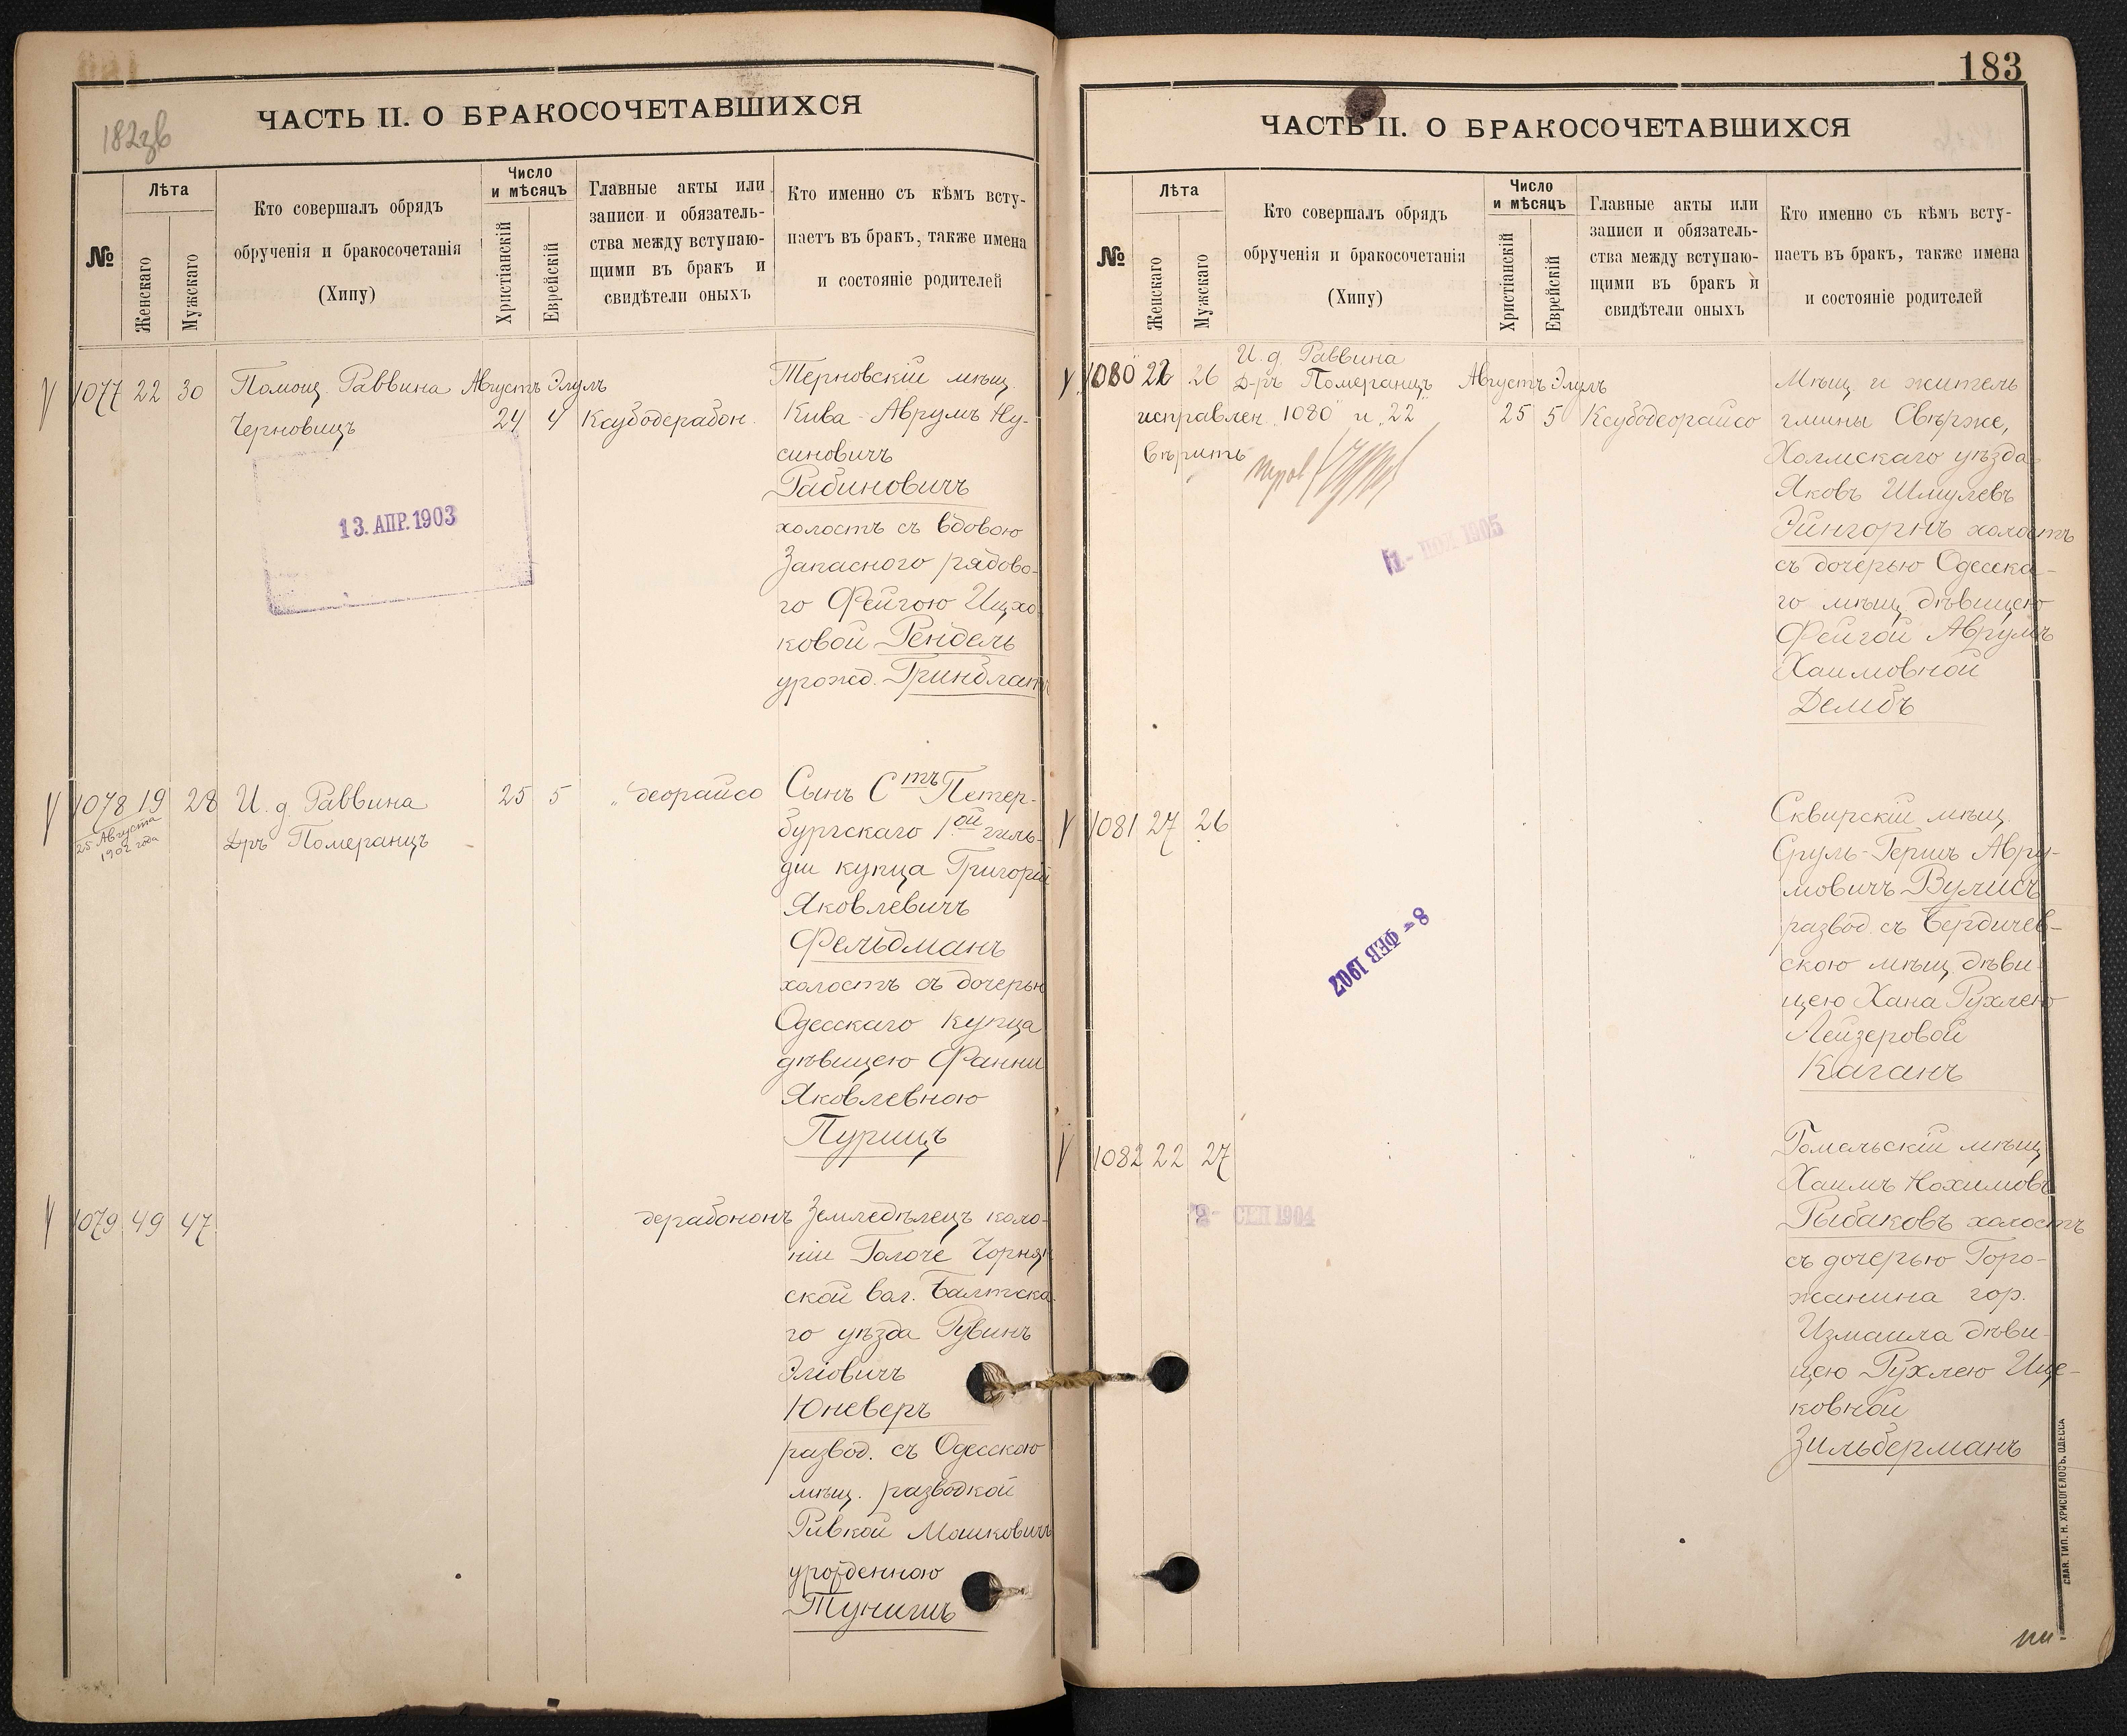 182зв
ЧАСТЬ II. О БРАКОСОЧЕТАВШИХСЯ
№
Лѣта
Женскаго
Мужскаго
Кто совершалъ обрядъ
обрученія и бракосочетанія
(Хипу)
Число
и мѣсяцъ
Христіанскій
Еврейскій
Главные акты или
записи и обязатель-
ства между вступаю-
щими въ бракъ и
свидѣтели оныхъ
Кто именно съ кѣмъ всту-
паетъ въ бракъ, также имена
и состояніе родителей
1077 22 30 Помощ. Раввина Августъ Элулъ
Черновицъ 24 4 Ксубодерабон.
Терновскій мѣщ.
Кива-Аврумъ Ну-
синовичъ
Рабиновичъ
холостъ съ вдовою
Запасного рядово-
го Фейгою Ицхо-
ковой Рендель
урожд. Гринблатъ
13. АПР. 1903
1078 19 28 И. д. Раввина 25 5 „ деорайсо
25 Августа
1902 года
Д-ръ Померанцъ
Сынъ Стъ Петер-
бургскаго 1ой гиль-
діи купца Григорій
Яковлевичъ
Фельдманъ
холостъ съ дочерью
Одесскаго купца
дѣвицею Фанни
Яковлевною
Пурицъ
1079 49 47 дерабононъ
Земледѣлецъ коло-
ніи Голоче Чорнян
ской вол. Балтска-
го уѣзда Рувинъ
Эліовичъ
Юневеръ
развод. съ Одесскою
мѣщ. разводкой
Ривкой Мошковичъ
урожденною
Тунишъ
183
ЧАСТЬ II. О БРАКОСОЧЕТАВШИХСЯ
№
Лѣта
Женскаго
Мужскаго
Кто совершалъ обрядъ
обрученія и бракосочетанія
(Хипу)
Число
и мѣсяцъ
Христіанскій
Еврейскій
Главные акты или
записи и обязатель-
ства между вступаю-
щими въ бракъ и
свидѣтели оныхъ
Кто именно съ кѣмъ всту-
паетъ въ бракъ, также имена
и состояніе родителей
И. д. Раввина
1080 22 26 Д-ръ Померанцъ Августъ Элулъ
исправлен. „1080" и „22" 25 5 Ксубодеорайсо
вѣрить
Мѣщ. и житель
гмины Свѣрже,
Холмскаго уѣзда
Яковъ Шмулевъ
Эйнгорнъ холостъ
съ дочерью Одесска-
го мѣщ. дѣвицею
Фейгой Аврумъ
Хаимовной
Дембъ
1905
1081 27 26
Сквирскій мѣщ.
Сруль-Гершъ Авру-
мовичъ Вулисъ
развод. съ Бердичев-
скою мѣщ. дѣви-
цею Хана Рухлею
Лейзеровой
Каганъ
8 - ФЕВ 1907
1082 22 27
Гомельскій мѣщ.
Хаимъ Нохимовъ
Рыбаковъ холостъ
съ дочерью Горо-
жанина гор.
Измаила дѣви-
цею Рухлею Ице-
ковной
Зильберманъ
СЕП 1904
СЛАВ. ТИП. Н. ХРИСОГЕЛОСЪ. ОДЕССА